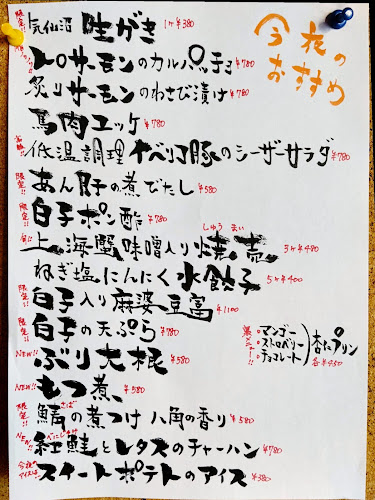 今夜の
おすすめ
限定!! 気仙沼 生がき 1ヶ ¥380
トロサーモンのカルパッチョ ¥780
炙りサーモンのわさび漬け ¥780
馬肉ユッケ ¥780
低温調理 イベリコ豚のシーザーサラダ ¥780
限定!! あん肝の煮びたし ¥580
限定!! 白子ポン酢 ¥780
しゅう まい
上海蟹味噌入り焼売 5ヶ ¥480
ねぎ塩にんにく水餃子 5ヶ ¥400
限定!! 白子入り麻婆豆富 ¥1100
限定!! 白子の天ぷら ¥780
NEW!! ぶり大根 ¥580
NEW!! もつ煮 ¥580
さば
限定!! 鯖の煮つけ 八角の香り ¥580
べにじゃけ
NEW!! 紅鮭とレタスのチャーハン ¥780
今夜のアイスは スイートポテトのアイス ¥380
裏メニュー!!
・マンゴー
・ストロベリー
・チョコレート
杏仁プリン
各 ¥450